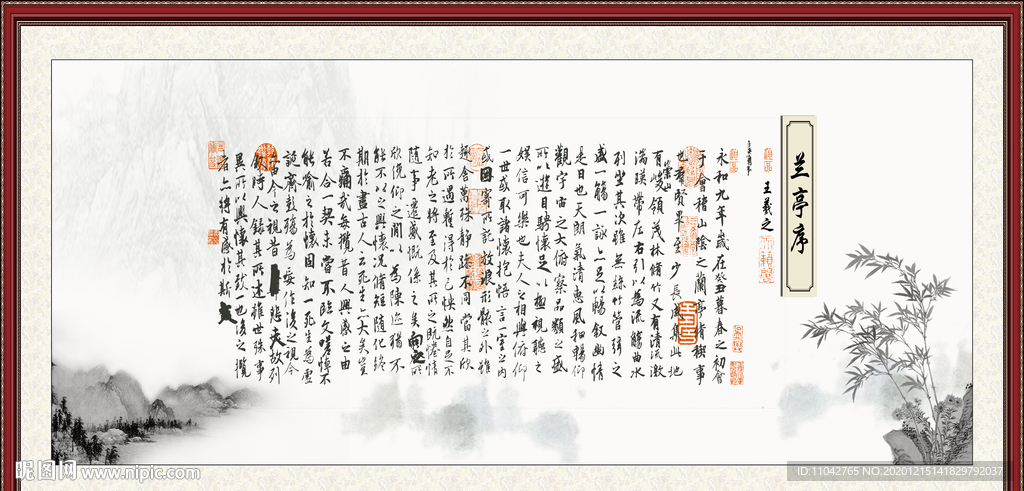 兰亭序
王羲之
永和九年歲在癸丑暮春之初會
于會稽山陰之蘭亭脩稧事
也群賢畢至少長咸集此地
有崇山峻領茂林脩竹又有清流激
湍暎帶左右引以為流觴曲水
列坐其次雖無絲竹管弦之
盛一觴一詠亦足以暢敘幽情
是日也天朗氣清惠風和暢仰
觀宇宙之大俯察品類之盛
所以遊目騁懷足以極視聽之
娛信可樂也夫人之相與俯仰
一世或取諸懷抱悟言一室之內
或因寄所託放浪形骸之外雖
趣舍萬殊靜躁不同當其欣
於所遇暫得於己怏然自足不
知老之將至及其所之既惓情
隨事遷感慨係之矣向之所
欣俛仰之閒以為陳迹猶不
能不以之興懷況脩短隨化終
期於盡古人云死生亦大矣豈
不痛哉每攬昔人興感之由
若合一契未嘗不臨文嗟悼不
能喻之於懷固知一死生為虛
誕齊彭殤為妄作後之視今
亦由今之視昔悲夫故列
敘時人錄其所述雖世殊事
異所以興懷其致一也後之攬
者亦將有感於斯文
昵图网 www.nipic.com
ID:11042765 NO:20201215141829792037